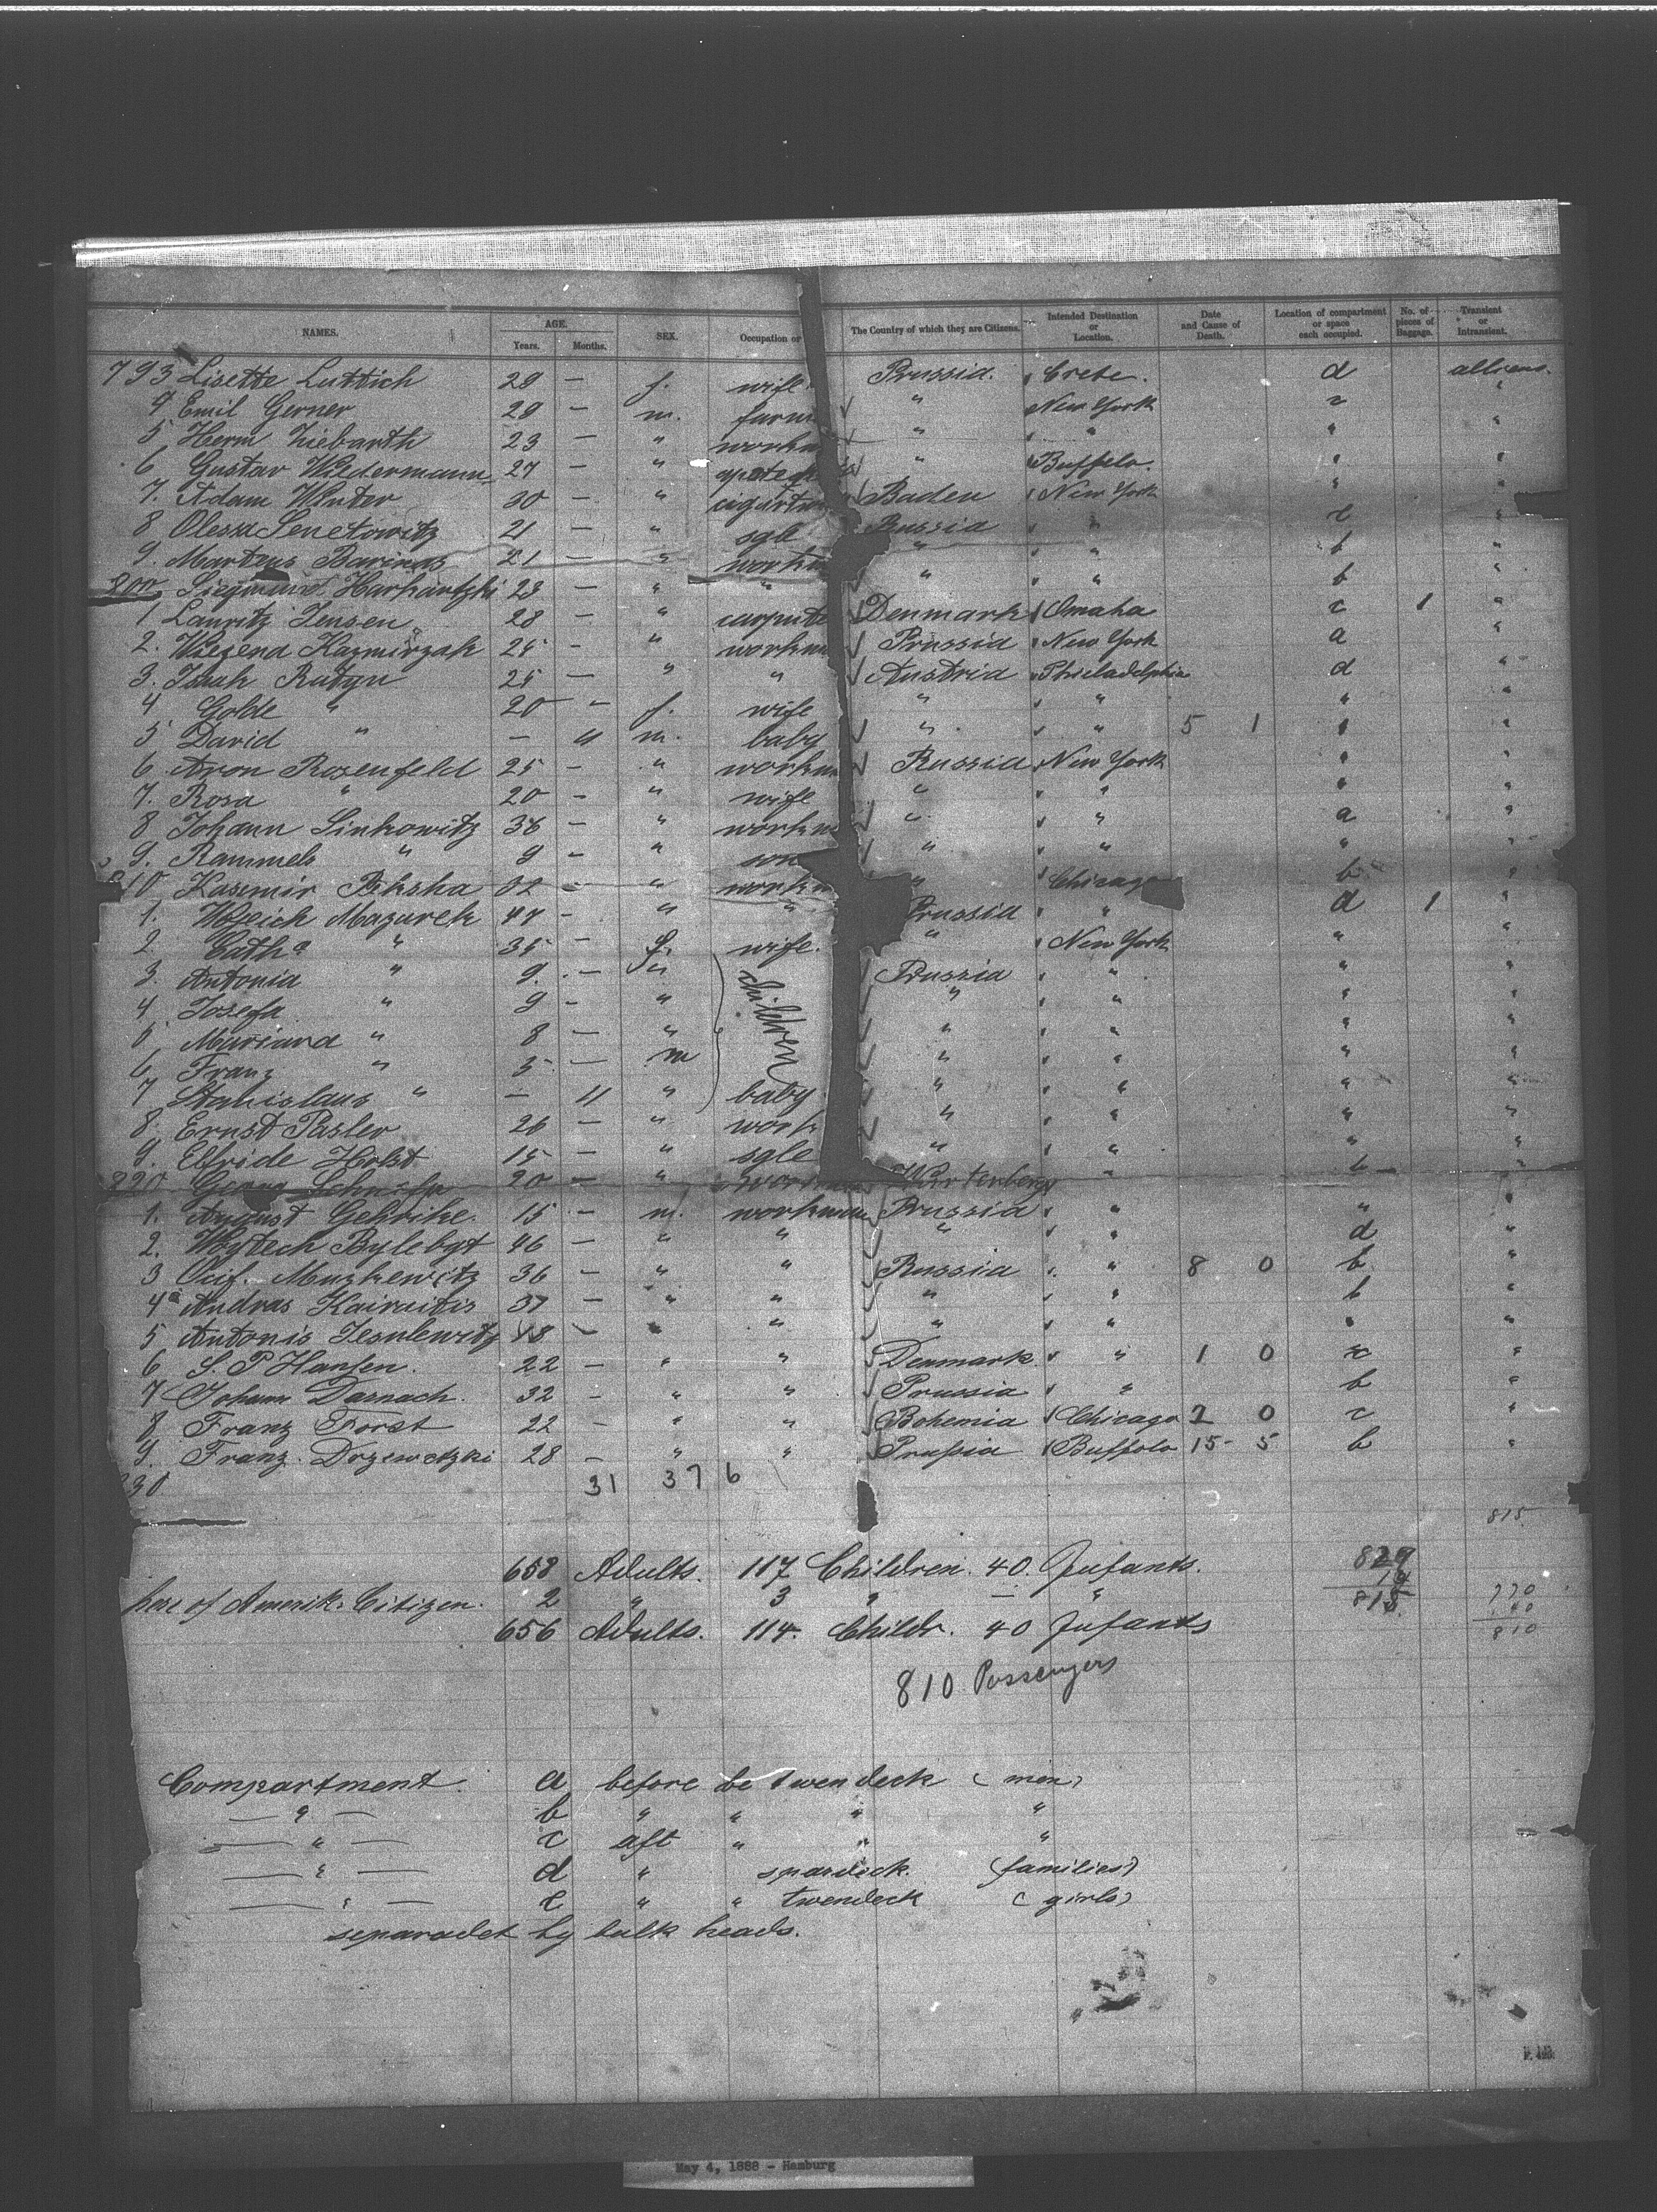 NAMES. AGE. Years. Months. SEX. Occupation or The Country of which they are Citizens. Intended Destination or Location. Date and Cause of Death. Location of compartment or space each occupied. No. of pieces of Baggage. Transient or Intransient.
793 Lisette Luttich 29 — f. wife Prussia. " Crete. d
4 Emil Gerner 29 — m. farm " New York c "
5 Herm Ziebarth 23 — " workm " " " " "
6 Gustav Wiedermann 27 — " " Buffelo. " "
7. Adam Winter 30 — " Baden " New York " "
8 Olessa Senetowitz 21 — " sgle Russia " " "
9. Martens Barinas 21 — " workm " " " b "
800. Siegmund Harhartzki 23 — " " " " " b "
1 Lauritz Jensen 28 — " carpente Denmark " Omaha c 1 "
2. Kazmirzak 25 — " workm Prussia " New York a "
3. Isaak Ratyn 25 — " " Austria " Philadelphia d "
4 Golde " 20 — f. wife " " " " "
5 David " — 11 m. baby " " " 5 1 " "
6. Aron Rosenfeld 25 — " workm Russia " New York " "
7. Rosa " 20 — " wife " " " " "
8 Johann Sinkowitz 38 — " workm " " " a "
9. Rammels " 9 — " son " " " " "
810 Kasimir Piksha 32 — " workm " " Chicago b "
1. Mazurek 47 — " " Prussia " " d 1 "
2 Catha " 35 — f. wife. " " New York " "
3. Antonia " 9. — " children Prussia " " " "
4 Josefa " 9 — " " " " " "
5 Mariana " 8 — " " " " " "
6 Franz " 5 — m " " " " "
7 Stanislaus " — 11 " baby " " " " "
8. Ernst Pasler 26 — " work " " " " "
9. Elfride Holst 15 — " sgle " " " " "
820 Georg 20 — " Würtenberg " b "
1. August Gehrike. 15 — m. workman Prussia " " " "
2. Woytech Bylebyt 46 — " " " " " d "
3 Osif. Muzhewitz 36 — " " Russia " " 8 0 b "
4 Andras Kairaitis 37 — " " " " " b "
5 Antonis Jesulewitz 18 — " " " " " " "
6 S P Hansen. 22 — " " Denmark " " 1 0 c "
7 Johann Darnach. 32 — " " Prussia " " b "
8 Franz Forst 22 — " " Bohemia " Chicago 2 0 c "
9. Franz. Drzewetzki 28 — " " Prussia " Buffolo 15 - 5 b "
830 31 37 6
815
658 Adults. 117 Children. 40. Infants. 829
here of Amerik. Citizen. 2 " 3 " — " 14 770
815. 40
656 Adults. 114. Childr. 40 Infants 810
810 Passengers
Compartment. a before be twendeck (men)
— " — b " " " "
— " — c aft " " "
— " — d " spardeck. (families)
— " — e " " twendeck (girls)
separadet by bulk heads.
May 4, 1888 - Hamburg